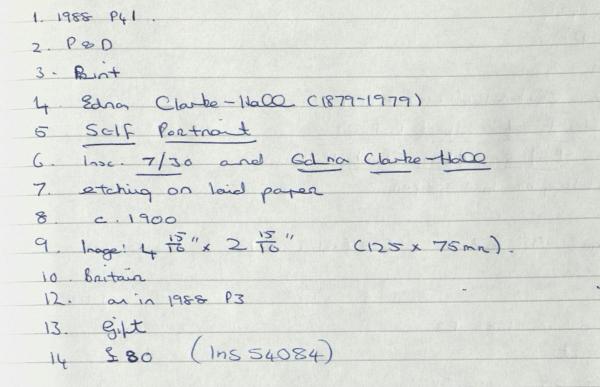 1. 1988 P41.
2. P&D
3. Print
4 Edna Clarke-Hall (1879-1979)
5 Self Portrait
6. Insc. 7/30 and Edna Clarke-Hall
7. etching on laid paper
8. c. 1900
9. Image: 4 15/16" x 2 15/16" (125 x 75mm).
10. Britain
12. as in 1988 P3
13. gift
14 £80 (Ins 54084)